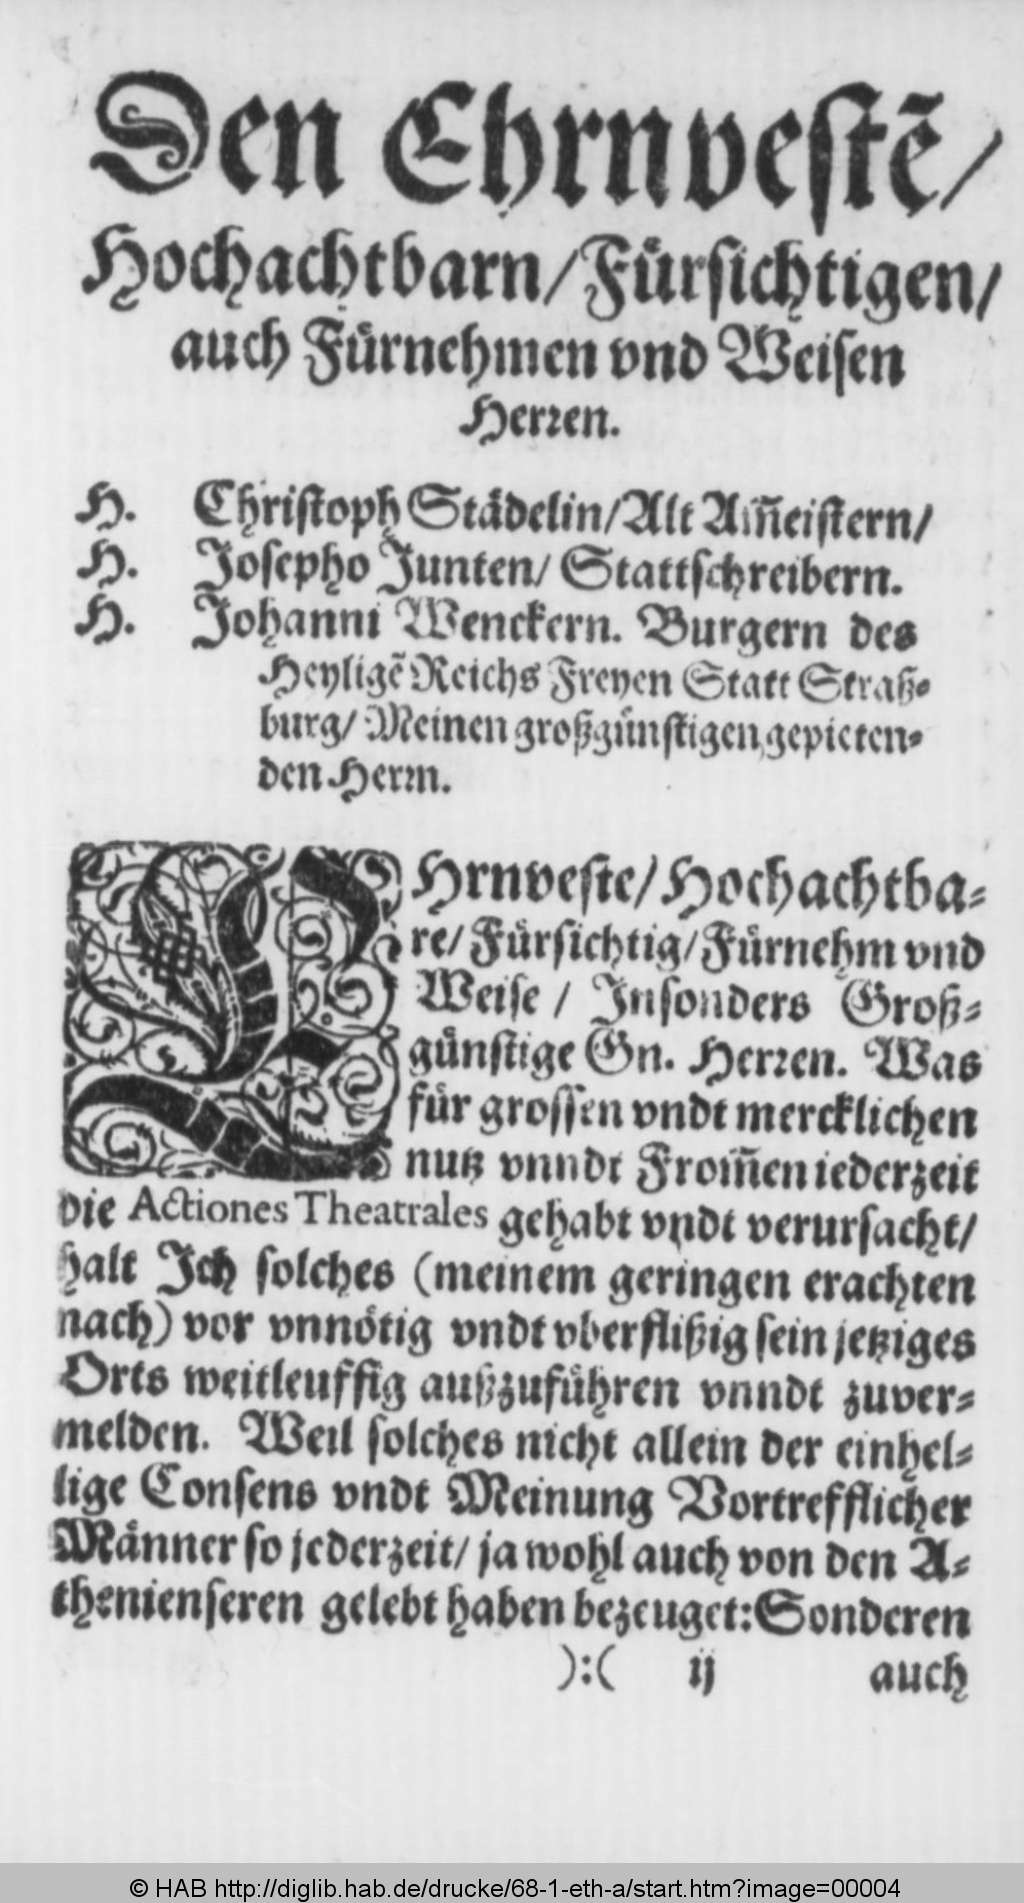 Den Ehrnveſtẽ/
Hochachtbarn/Fuͤrſichtigen/
auch Fuͤrnehmen vnd Weiſen
Herꝛen.
H. Chriſtoph Staͤdelin/Alt Am̃eiſtern/
H. Joſepho Junten/ Stattſchreibern.
H. Johanni Wenckern. Burgern des
Heyligẽ Reichs Freyen Statt Straß-
burg/ Meinen großguͤnſtigen,gepieten-
den Herꝛn.
EHrnveſte/Hochachtba-
re/Fuͤrſichtig/Fuͤrnehm vnd
Weiſe / Inſonders Groß-
guͤnſtige Gn. Herꝛen. Was
fuͤr groſſen vndt mercklichen
nutz vnndt From̃en iederzeit
die Actiones Theatrales gehabt vndt verurſacht/
halt Ich ſolches (meinem geringen erachten
nach) vor vnnoͤtig vndt vberflißig ſein jetziges
Orts weitleuffig außzufuͤhren vnndt zuver-
melden. Weil ſolches nicht allein der einhel-
lige Conſens vndt Meinung Vortrefflicher
Maͤnner ſo jederzeit/ ja wohl auch von den A-
thenienſeren gelebt haben bezeuget:Sonderen
):( ij auch
© HAB http://diglib.hab.de/drucke/68-1-eth-a/start.htm?image=00004